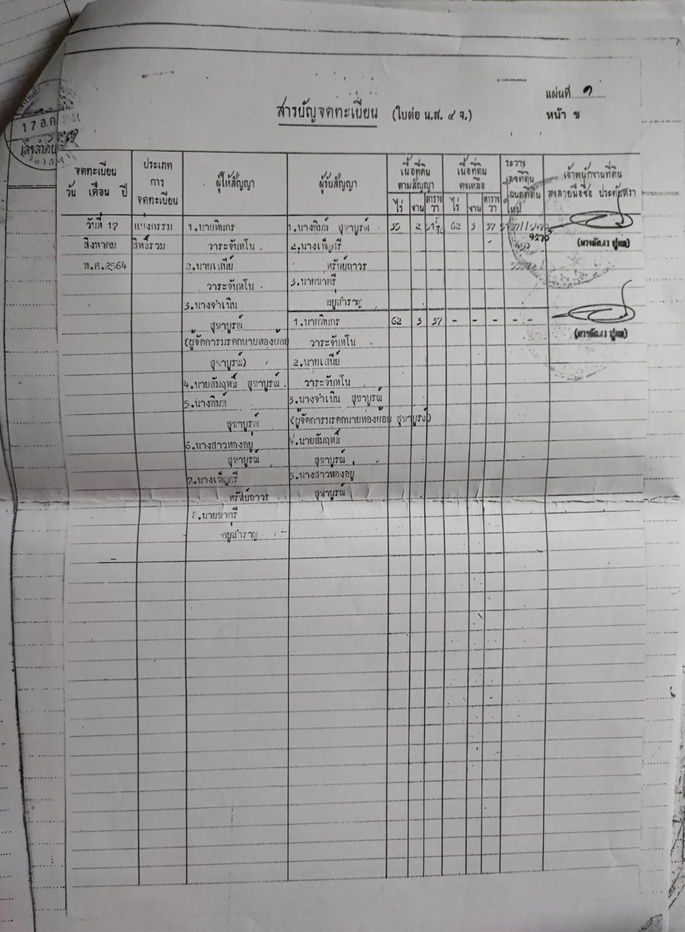 แผ่นที่ ๑
สารบัญจดทะเบียน (ใบต่อ น.ส. ๔ จ.) หน้า ข
17 ส.ค.
จดทะเบียน วัน เดือน ปี
ประเภท การ จดทะเบียน
ผู้ให้สัญญา
ผู้รับสัญญา
เนื้อที่ดิน ตามสัญญา
ไร่ งาน ตาราง วา
เนื้อที่ดิน คงเหลือ
ไร่ งาน ตาราง วา
ระวาง เลขที่ดิน โฉนดที่ดิน ใหม่
เจ้าพนักงานที่ดิน ลงลายมือชื่อ ประทับตรา
วันที่ 17 แบ่งกรรม 1.นายทินกร 1.นางพิมล์ สุขาบูรณ์ 35 2 62 3 37
สิงหาคม สิทธิ์รวม วาระจันทโน 2.นางเพ็ญศรี
พ.ศ.2564 2.นายเสนีย์ ทรัพย์ถาวร
วาระจันทโน 3.นายชาตรี
3.นางจำเนิน อยู่สำราญ
สุขาบูรณ์ 1.นายทินกร 62 3 37 - - - -
(ผู้จัดการมรดกนายทองย้อย วาระจันทโน
สุขาบูรณ์) 2.นายเสนีย์
4.นายสัมฤทธิ์ สุขาบูรณ์ วาระจันทโน
5.นางพิมล์ 3.นางจำเนิน สุขาบูรณ์
สุขาบูรณ์ (ผู้จัดการมรดกนายทองย้อย สุขาบูรณ์)
6.นางสาวทองอยู่ 4.นายสัมฤทธิ์
สุขาบูรณ์ สุขาบูรณ์
7.นางเพ็ญศรี 5.นางสาวทองอยู่
ทรัพย์ถาวร สุขาบูรณ์
8.นายชาตรี
อยู่สำราญ